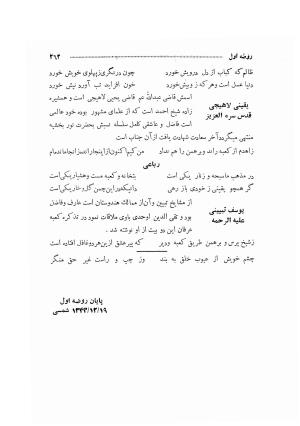 روضه اول ۳۱۳
ظالم که کباب از دل درویش خورد چون درنگری ز پهلوی خویش خورد
دنیا عسل است وهر که زو بیش خورد خون افزاید تب آورد نیش خورد
یقینی لاهیجی
قدس سره العزیز
اسمش قاضی عبدالله عم قاضی یحیی لاهیجی است و همشیره
زاده شیخ احمد است که از علمای مشهور بوده خود عالمی
است فاضل و عاشقی کامل سلسله نسبش بحضرت نور بخشیه
منتهی میگردد آخر سعادت شهادت یافت از آن جناب است
زاهدم از کعبه راند و برهمن را هم نداد من کیم اکنون از اینجا رانده از آنجا مانده ام
رباعی
در مذهب ما سبحه و زنار یکی است بتخانه و کعبه مست و هشیار یکی است
گر همچو یقینی ز خودی باز رهی دانی که در این چمن گل و خار یکی است
یوسف تبیینی
علیه الرحمه
از مشایخ تبیین و آن از ممالک هندوستان است عارف وفاضل
بود و تقی الدین اوحدی باوی ملاقات نمود در تذکره کعبه
عرفان این دو بیت از او نوشته شد .
ز شیخ پرس و برهمن طریق کعبه ودیر که پیر عشق از این هر دو غافل افتاده است
چشم خویش از عیوب خلق به بند وز چپ و راست غیر حق منگر
پایان روضه اول
۱۳۴۳/۱۲/۱۹ شمسی